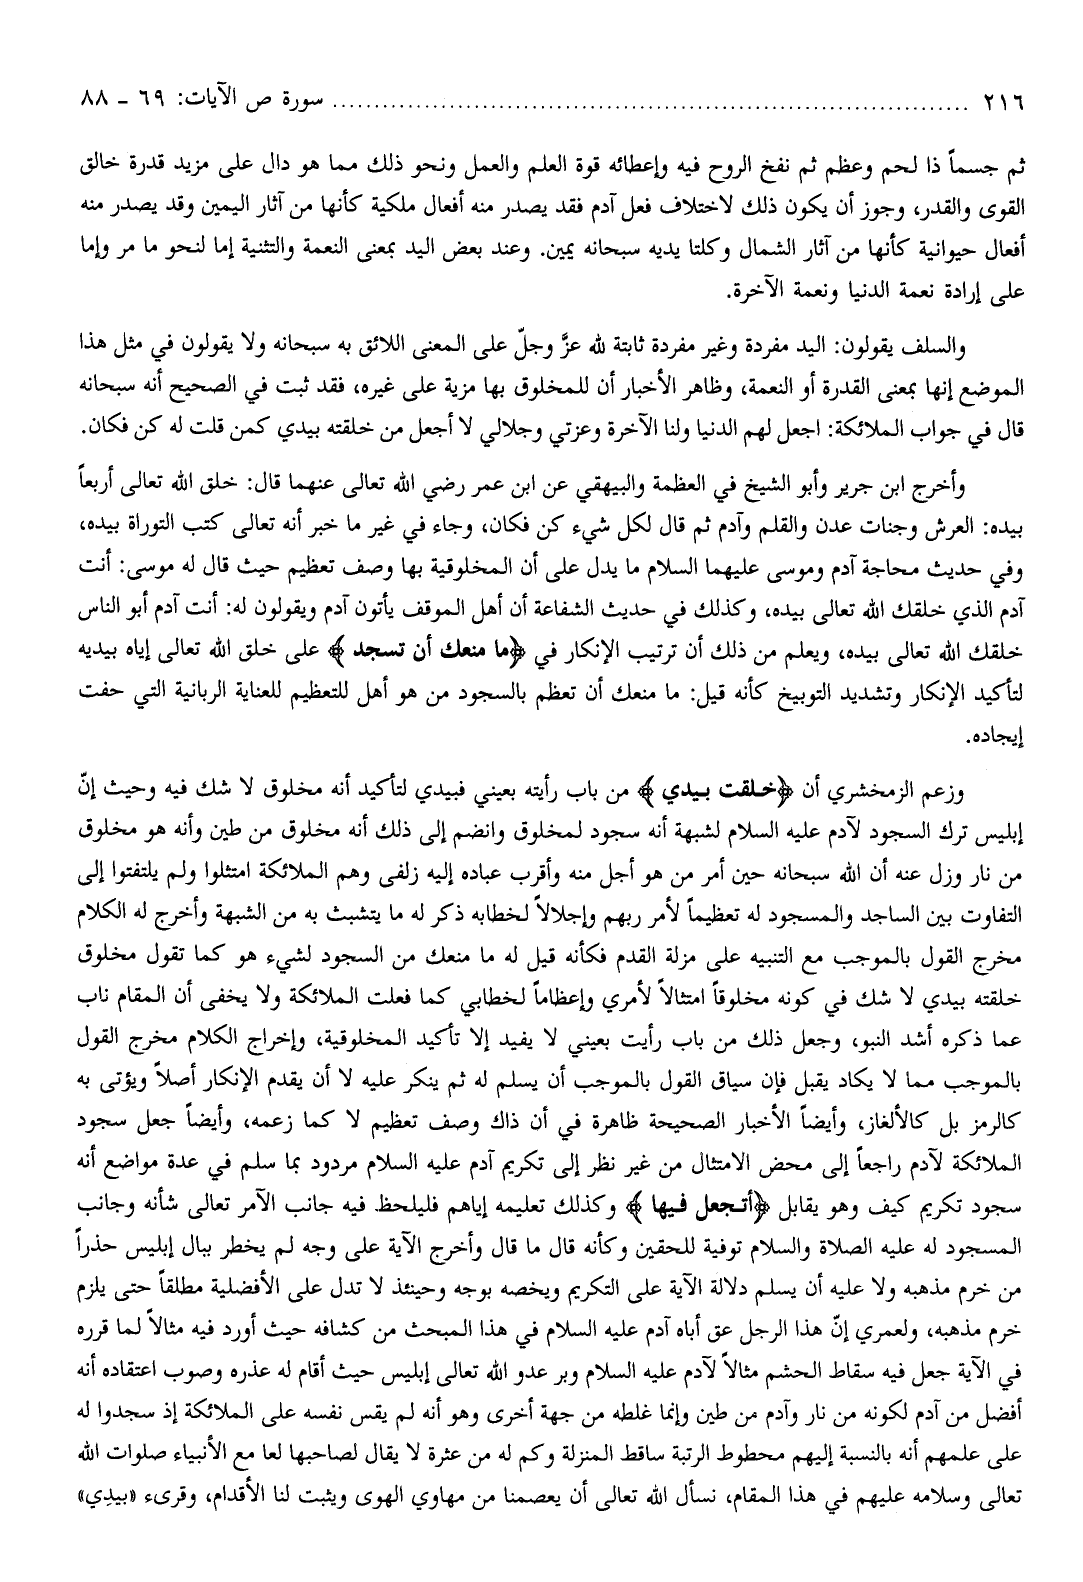 ٢١٦ ........................................................................ سورة ص الآيات: ٦٩ - ٨٨
ثم جسماً ذا لحم وعظم ثم نفخ الروح فيه وإعطائه قوة العلم والعمل ونحو ذلك مما هو دال على مزيد قدرة خالق
القوى والقدر، وجوز أن يكون ذلك لاختلاف فعل آدم فقد يصدر منه أفعال ملكية كأنها من آثار اليمين وقد يصدر منه
أفعال حيوانية كأنها من آثار الشمال وكلتا يديه سبحانه يمين. وعند بعض اليد بمعنى النعمة والتثنية إما لنحو ما مر وإما
على إرادة نعمة الدنيا ونعمة الآخرة.
والسلف يقولون: اليد مفردة وغير مفردة ثابتة لله عزَّ وجلّ على المعنى اللائق به سبحانه ولا يقولون في مثل هذا
الموضع إنها بمعنى القدرة أو النعمة، وظاهر الأخبار أن للمخلوق بها مزية على غيره، فقد ثبت في الصحيح أنه سبحانه
قال في جواب الملائكة: اجعل لهم الدنيا ولنا الآخرة وعزتي وجلالي لا أجعل من خلقته بيدي كمن قلت له كن فكان.
وأخرج ابن جرير وأبو الشيخ في العظمة والبيهقي عن ابن عمر رضي الله تعالى عنهما قال: خلق الله تعالى أربعاً
بيده: العرش وجنات عدن والقلم وآدم ثم قال لكل شيء كن فكان، وجاء في غير ما خبر أنه تعالى كتب التوراة بيده،
وفي حديث محاجة آدم وموسى عليهما السلام ما يدل على أن المخلوقية بها وصف تعظيم حيث قال له موسى: أنت
آدم الذي خلقك الله تعالى بيده، وكذلك في حديث الشفاعة أن أهل الموقف يأتون آدم ويقولون له: أنت آدم أبو الناس
خلقك الله تعالى بيده، ويعلم من ذلك أن ترتيب الإنكار في ﴿ما منعك أن تسجد﴾ على خلق الله تعالى إياه بيديه
لتأكيد الإنكار وتشديد التوبيخ كأنه قيل: ما منعك أن تعظم بالسجود من هو أهل للتعظيم للعناية الربانية التي حفت
إيجاده.
وزعم الزمخشري أن ﴿خلقت بيدي﴾ من باب رأيته بعيني فبيدي لتأكيد أنه مخلوق لا شك فيه وحيث إنّ
إبليس ترك السجود لآدم عليه السلام لشبهة أنه سجود لمخلوق وانضم إلى ذلك أنه مخلوق من طين وأنه هو مخلوق
من نار وزل عنه أن الله سبحانه حين أمر من هو أجل منه وأقرب عباده إليه زلفى وهم الملائكة امتثلوا ولم يلتفتوا إلى
التفاوت بين الساجد والمسجود له تعظيماً لأمر ربهم وإجلالاً لخطابه ذكر له ما يتشبث به من الشبهة وأخرج له الكلام
مخرج القول بالموجب مع التنبيه على مزلة القدم فكأنه قيل له ما منعك من السجود لشيء هو كما تقول مخلوق
خلقته بيدي لا شك في كونه مخلوقاً امتثالاً لأمري وإعظاماً لخطابي كما فعلت الملائكة ولا يخفى أن المقام ناب
عما ذكره أشد النبو، وجعل ذلك من باب رأيت بعيني لا يفيد إلا تأكيد المخلوقية، وإخراج الكلام مخرج القول
بالموجب مما لا يكاد يقبل فإن سياق القول بالموجب أن يسلم له ثم ينكر عليه لا أن يقدم الإنكار أصلاً ويؤتى به
كالرمز بل كالألغاز، وأيضاً الأخبار الصحيحة ظاهرة في أن ذاك وصف تعظيم لا كما زعمه، وأيضاً جعل سجود
الملائكة لآدم راجعاً إلى محض الامتثال من غير نظر إلى تكريم آدم عليه السلام مردود بما سلم في عدة مواضع أنه
سجود تكريم كيف وهو يقابل ﴿أتجعل فيها﴾ وكذلك تعليمه إياهم فليلحظ فيه جانب الآمر تعالى شأنه وجانب
المسجود له عليه الصلاة والسلام توفية للحقين وكأنه قال ما قال وأخرج الآية على وجه لم يخطر ببال إبليس حذراً
من خرم مذهبه ولا عليه أن يسلم دلالة الآية على التكريم ويخصه بوجه وحينئذ لا تدل على الأفضلية مطلقاً حتى يلزم
خرم مذهبه، ولعمري إنّ هذا الرجل عق أباه آدم عليه السلام في هذا المبحث من كشافه حيث أورد فيه مثالاً لما قرره
في الآية جعل فيه سقاط الحشم مثالاً لآدم عليه السلام وبر عدو الله تعالى إبليس حيث أقام له عذره وصوب اعتقاده أنه
أفضل من آدم لكونه من نار وآدم من طين وإنما غلطه من جهة أخرى وهو أنه لم يقس نفسه على الملائكة إذ سجدوا له
على علمهم أنه بالنسبة إليهم محطوط الرتبة ساقط المنزلة وكم له من عثرة لا يقال لصاحبها لعا مع الأنبياء صلوات الله
تعالى وسلامه عليهم في هذا المقام، نسأل الله تعالى أن يعصمنا من مهاوي الهوى ويثبت لنا الأقدام، وقرىء «بيدِي»